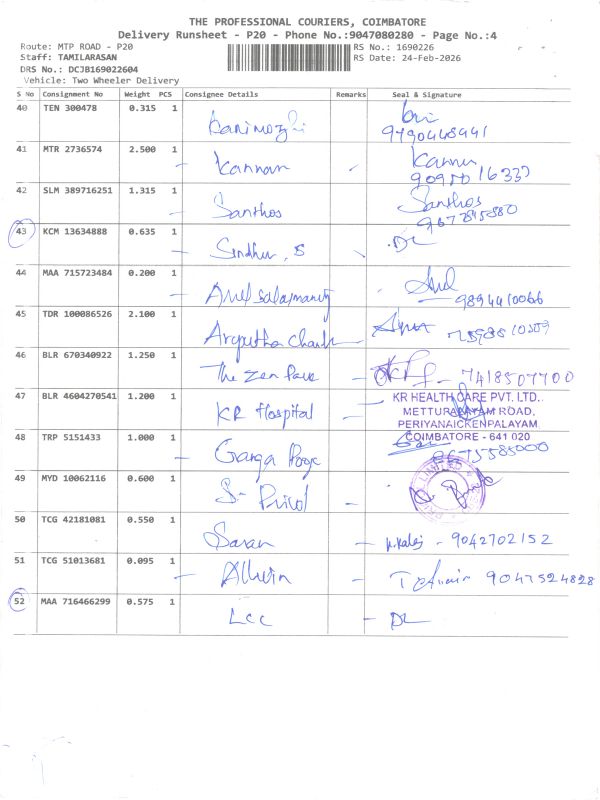 THE PROFESSIONAL COURIERS, COIMBATORE
Delivery Runsheet - P20 - Phone No.:9047080280 - Page No.:4
Route: MTP ROAD - P20
RS No.: 1690226
Staff: TAMILARASAN
RS Date: 24-Feb-2026
DRS No.: DCJB169022604
Vehicle: Two Wheeler Delivery
S No Consignment No Weight PCS Consignee Details Remarks Seal & Signature
40 TEN 300478 0.315 1 Kanimozhi
9790448941
41 MTR 2736574 2.500 1 Kannan
42 SLM 389716251 1.315 1 Santhos Santhos
43 KCM 13634888 0.635 1 Sindhu, S DL
44 MAA 715723484 0.200 1
9894410066
45 TDR 100086526 2.100 1
46 BLR 670340922 1.250 1 The Zen Park 7418507700
47 BLR 4604270541 1.200 1 KR Hospital
KR HEALTH CARE PVT. LTD.,
METTUPALAYAM ROAD,
PERIYANAICKENPALAYAM
COIMBATORE - 641 020
48 TRP 5151433 1.000 1 Ganga
49 MYD 10062116 0.600 1
50 TCG 42181081 0.550 1 Saran - 9042702152
51 TCG 51013681 0.095 1 Allwin 9047524828
52 MAA 716466299 0.575 1 Lcc - DL